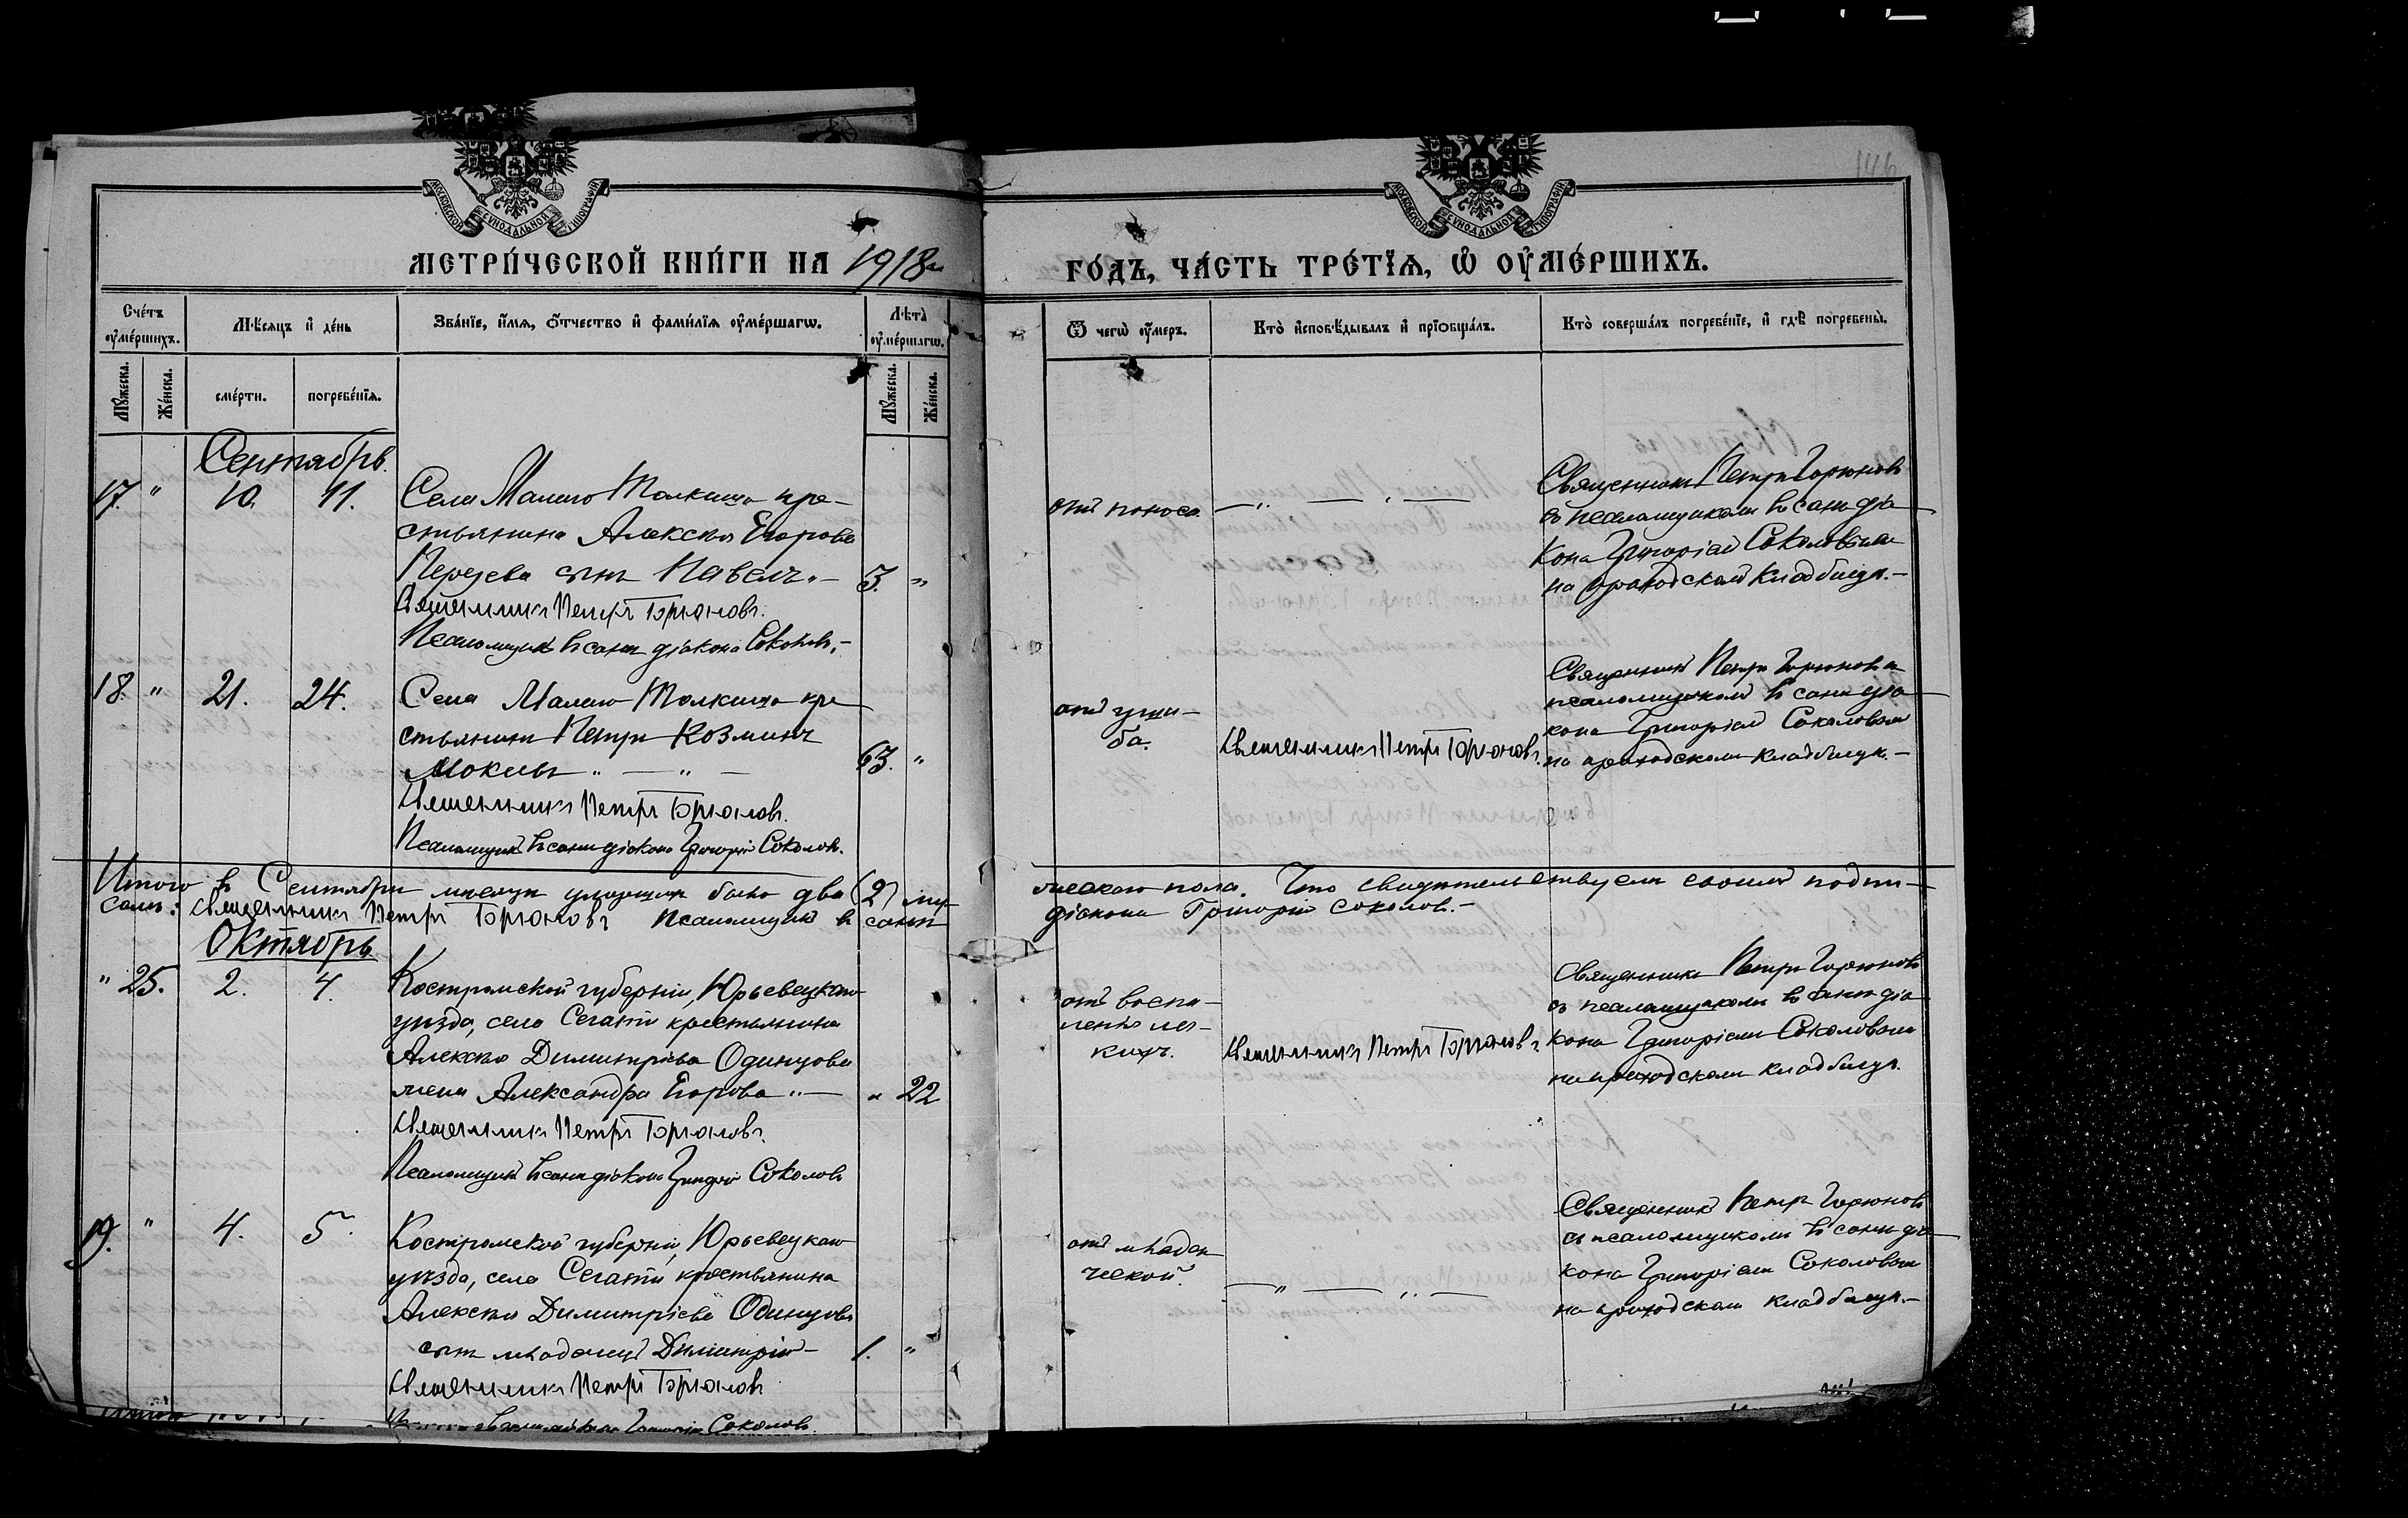 146
МОСКОВСКОЙ СУНОДАЛЬНОЙ ТИПОГРАФІИ
МОСКОВСКОЙ СУНОДАЛЬНОЙ ТИПОГРАФІИ
МЕТРИ́ЧЕСКОЙ КНИ́ГИ НА 1918й
ГО́ДЪ, ЧА́СТЬ ТРЕ́ТЇѦ, Ѡ҆ ОУ҆МЕ́РШИХЪ.
Сче́тъ оу҆ме́ршихъ.
Мѣ́сѧцъ и҆ де́нь
Зва́нїе, и҆́мѧ, ѻ҆́тчество и҆ фами́лїѧ оу҆ме́ршагѡ.
Лѣта̀ оу҆ме́ршагѡ.
Ѿ чегѡ̀ оу҆́меръ.
Кто̀ и҆сповѣ́дывалъ и҆ прїѡбща́лъ.
Кто̀ соверша́лъ погребе́нїе, и҆ гдѣ̀ погребены̀.
Мꙋ́жеска.
Же́нска.
сме́рти.
погребе́нїѧ.
Мꙋ́жеска.
Же́нска.
Сентябрь.
17. " 10. 11.
Села Малаго Толкиша кре-
стьянина Алексѣя Егорова
сынъ Павелъ. —
3. "
Священникъ Петръ Горюновъ.
Псаломщикъ въ санѣ діакона Соколовъ. —
отъ поноса.
Священникъ Петръ Горюновъ
съ псаломщикомъ въ санѣ діа-
кона Григоріемъ Соколовымъ
на приходскомъ кладбищѣ. —
18. " 21. 24.
Села Малаго Толкиша кре-
стьянинъ Петръ Козминъ
Мокинъ " — " —
63. "
Священникъ Петръ Горюновъ.
Псаломщикъ въ санѣ діакона Григорій Соколовъ.
отъ уши-
ба.
Священникъ Петръ Горюновъ.
Священникъ Петръ Горюновъ съ
псаломщикомъ въ санѣ діа-
кона Григоріемъ Соколовымъ
на приходскомъ кладбищѣ. —
Итого въ Сентябрѣ мѣсяцѣ умершихъ было два (2) му-
жескаго пола. Что свидѣтельствуемъ своимъ подпи-
сомъ: Священникъ Петръ Горюновъ Псаломщикъ въ санѣ
діакона Григорій Соколов. —
Октябрь
" 25. 2. 4.
Костромской губерніи, Юрьевецкаго
уѣзда, села Сеготи крестьянина
Алексѣя Димитріева Одинцова
жена Александра Егорова " —
" 22
Священникъ Петръ Горюновъ.
Псаломщикъ въ санѣ діакона Григорій Соколовъ
отъ воспа-
ленія лег-
кихъ.
Священникъ Петръ Горюновъ.
Священникъ Петръ Горюновъ
съ псаломщикомъ въ санѣ діа-
кона Григоріемъ Соколовымъ
на приходскомъ кладбищѣ.
19. " 4. 5.
Костромской губерніи, Юрьевецкаго
уѣзда, села Сеготи крестьянина
Алексѣя Димитріева Одинцова
сынъ младенецъ Димитрій —
1. "
Священникъ Петръ Горюновъ
Григорій Соколовъ.
отъ младен
ческой.
Священникъ Петръ Горюновъ
съ псаломщикомъ въ санѣ діа-
кона Григоріемъ Соколовымъ
на приходскомъ кладбищѣ. —